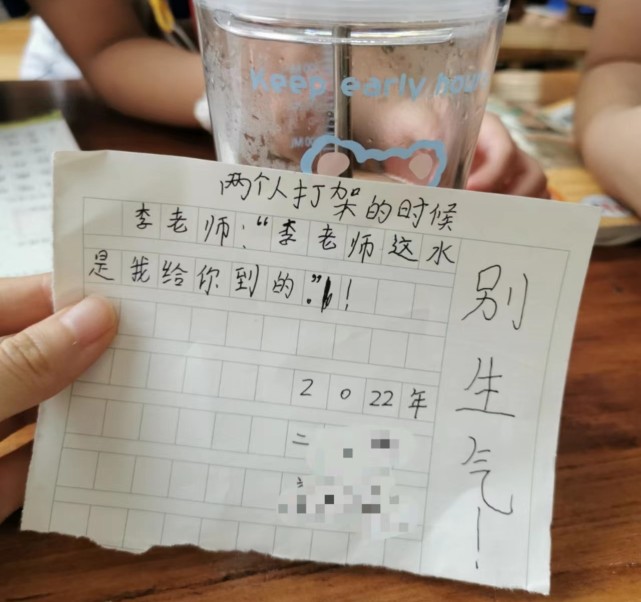 Keep early hou
两个人打架的时候
李老师:“李老师这水
是我给你到的。”!
2022年
二
别生气!